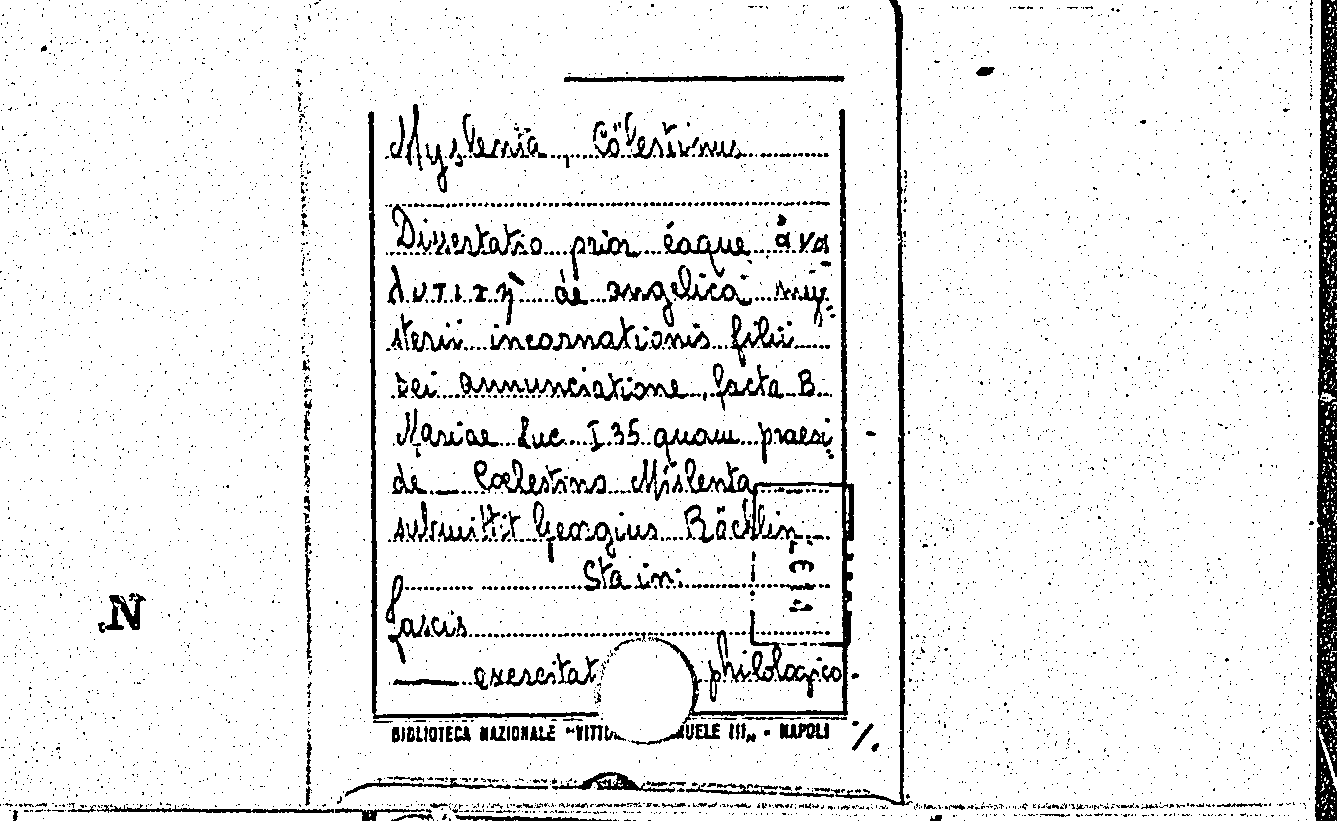 Myslenta, Cölestinus
Dissertatio prior éaque ἀνα
λυτικὴ de angelica my-
sterii incarnationis filii
Dei annunciatione, facta B.
Mariae Luc. I 35 quam praesi-
de — Coelestino Mislenta
submittit Georgius Röchlin
Sta in:
fascis
— exercitat philologico-
BIBLIOTECA NAZIONALE "VITTO UELE III„ - NAPOLI
%.
N